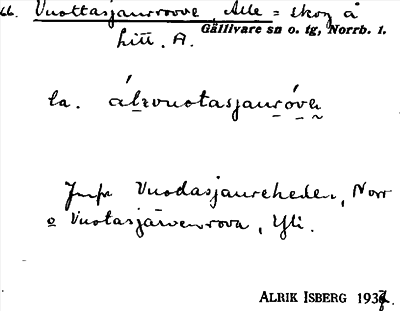 66. Vuottasjaurroove, Alle = skog å
Gällivare sn o. tg, Norrb. l.
Litt. A.
la. álzvuotasjaurṓva
Jmfr Vuodasjaureheden, Norr
o Vuotasjärvenrova, Yli.
ALRIK ISBERG 1937.